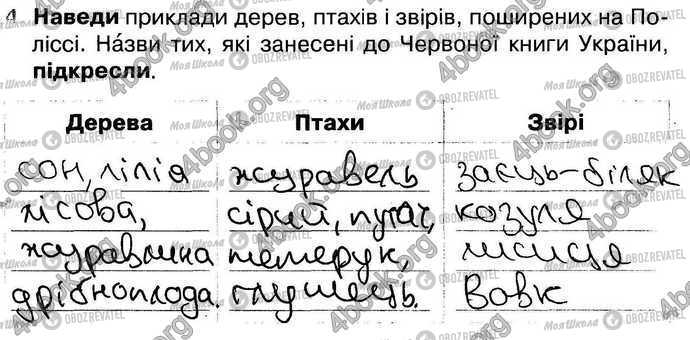 4 Наведи приклади дерев, птахів і звірів, поширених на По-
ліссі. На́зви тих, які занесені до Червоної книги України,
підкресли.
Дерева Птахи Звірі
сон, лілія журавель заєць-біляк
лісова, сірий, пугач, козуля
журавлина тетерук, лисиця
дрібноплода. глушець. Вовк